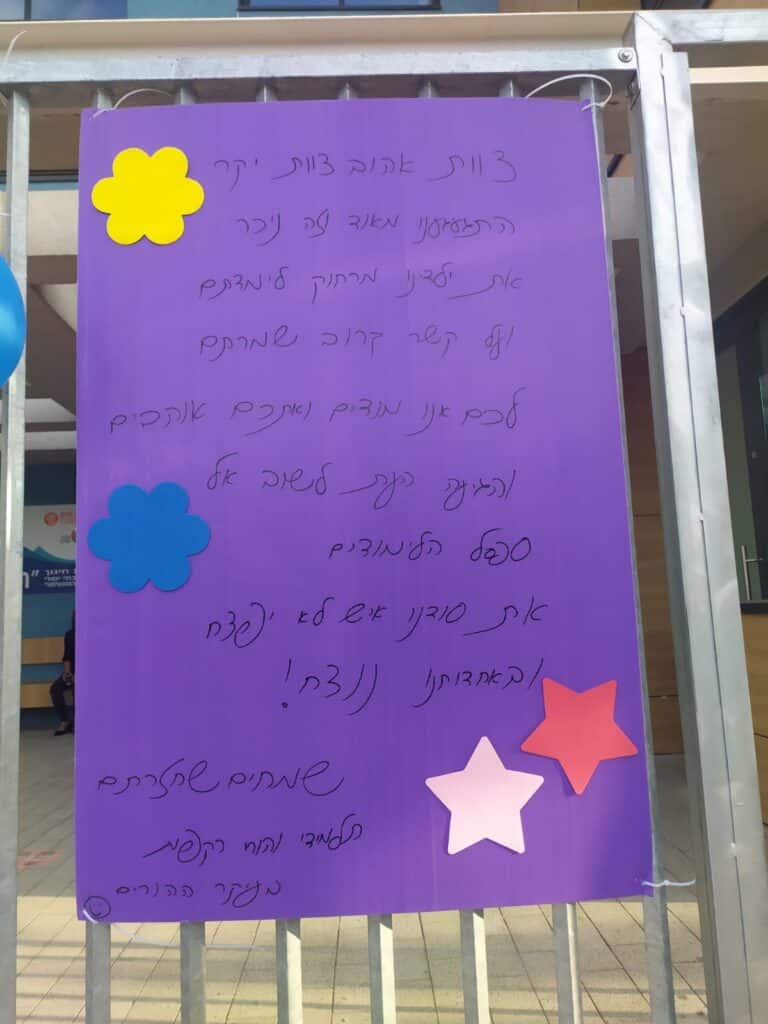 צוות אהוב צוות יקר
התגעגענו מאוד וזה ניכר
את ילדינו מרחוק לימדתם
ועל קשר קרוב שמרתם
לכם אנו מודים ואתכם אוהבים
והגיעה העת לשוב אל
ספסל הלימודים
את סודנו איש לא יפצח
ובאחדותנו ננצח!
שמחים שחזרתם
תלמידי והורי רקפות
בעיקר ההורים
חינוך